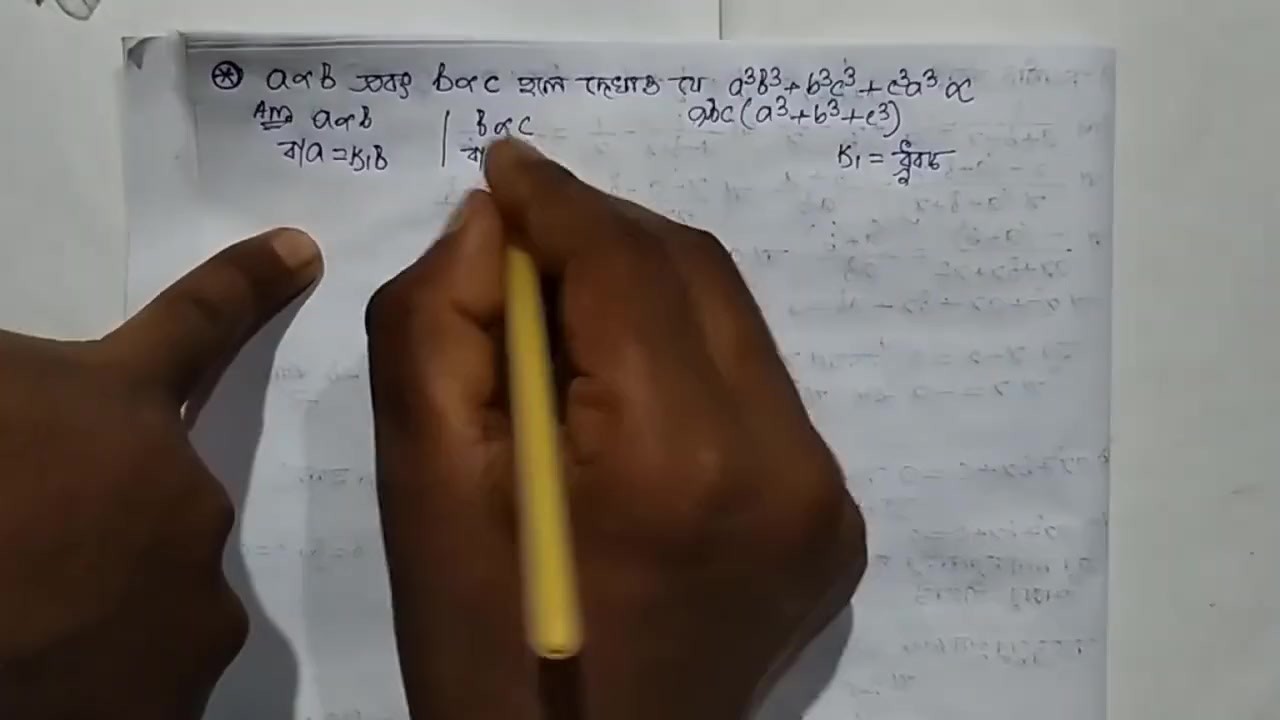 * a∝B এবং B∝C হলে দেখাও যে a³B³ + b³c³ + c³a³ ∝
abc(a³+b³+c³)
Ans a∝B | B∝C
বা a = K₁B | বা K₁ = ধ্রুবক